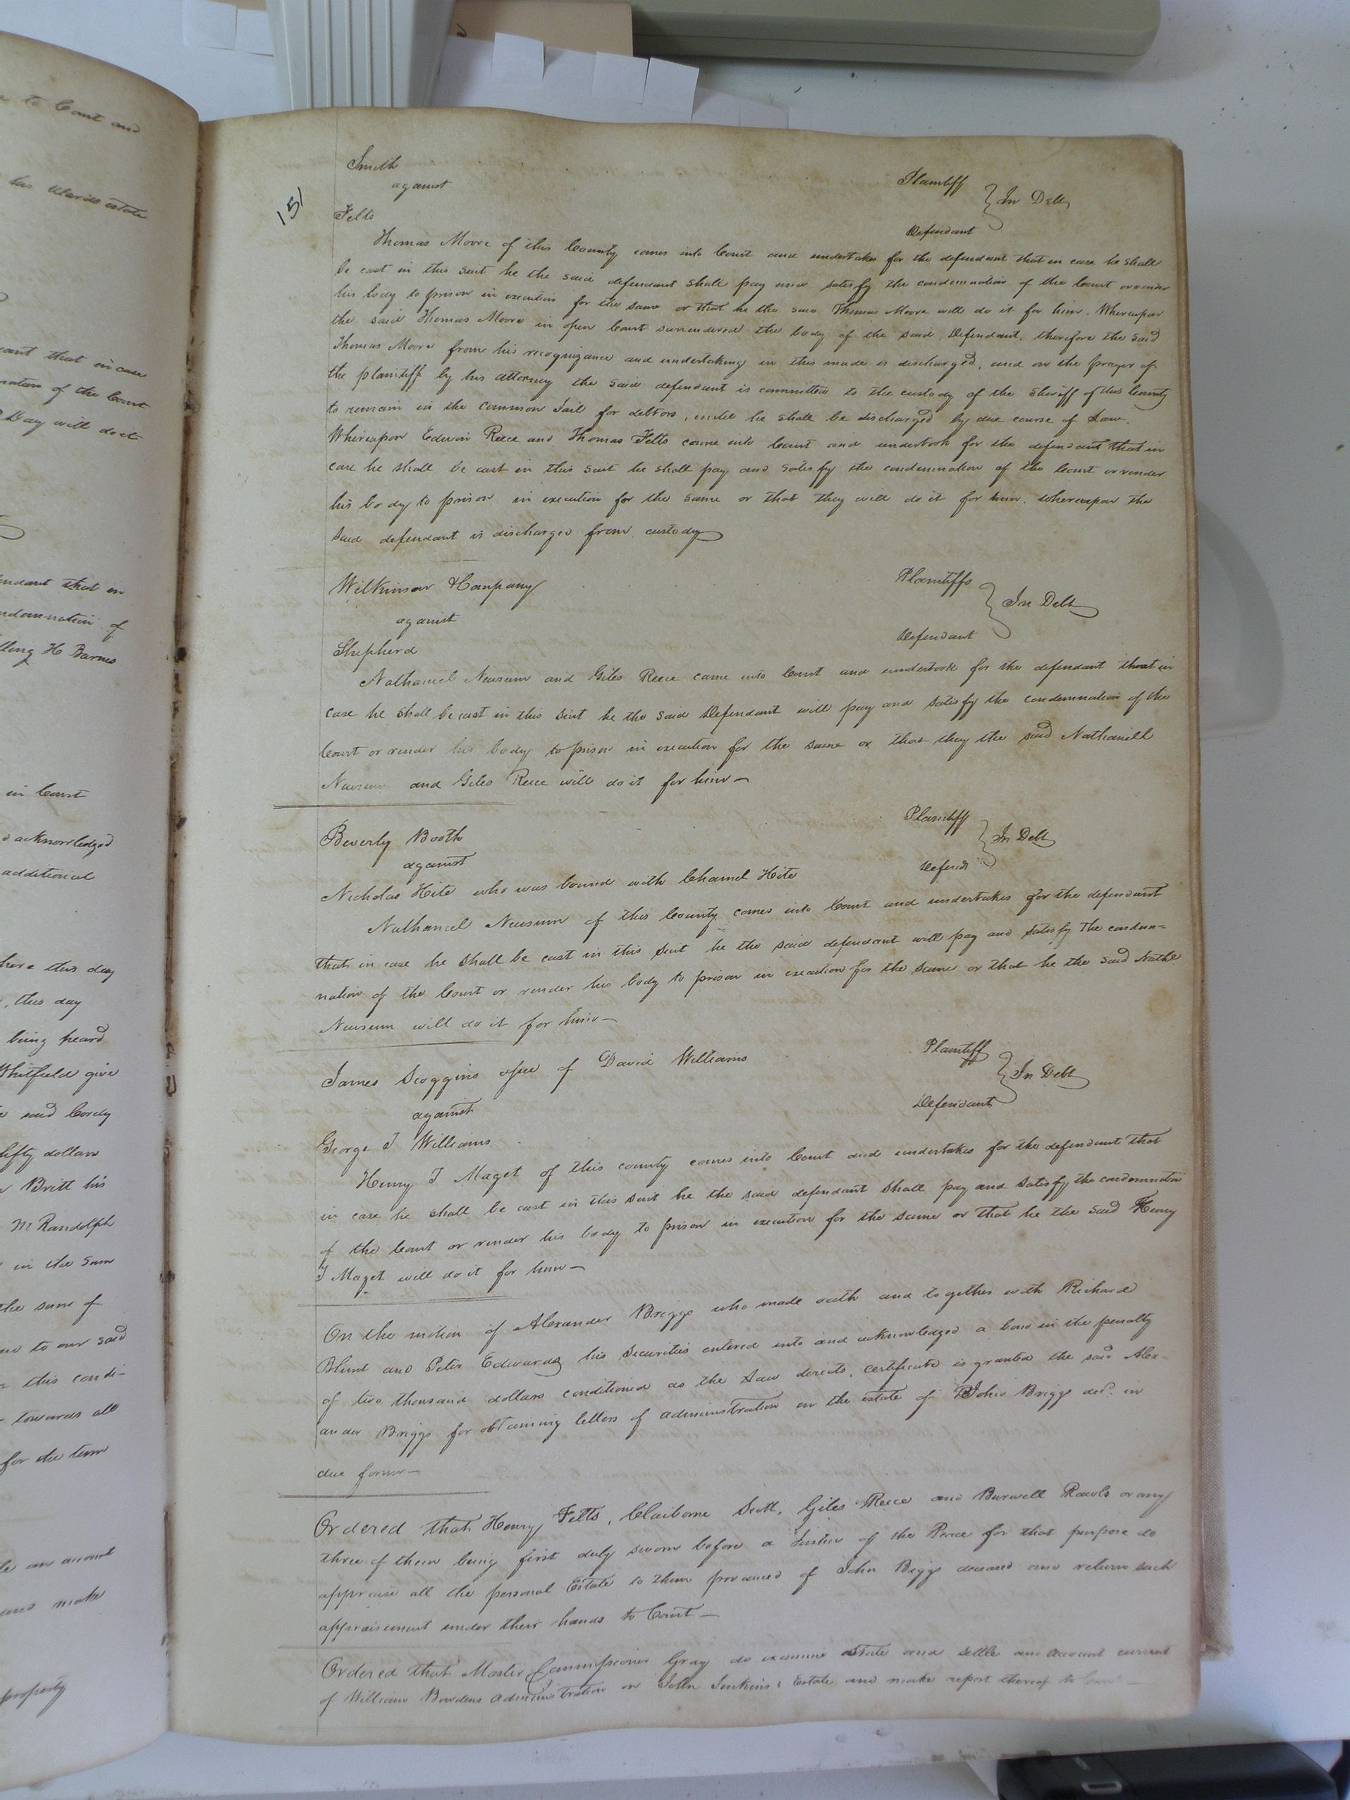 151
Smith Plaintiff
against In Debt
Felts Defendant
Thomas Moore of this County comes into Court and undertakes for the defendant that in case he shall
be cast in this suit he the said defendant shall pay and satisfy the condemnation of the Court or render
his body to prison in execution for the same or that he the said Thomas Moore will do it for him. Whereupon
the said Thomas Moore in open Court surrendered the body of the said Defendant, therefore the said
Thomas Moore from his recognizance and undertaking in this made is discharged, and on the prayer of
the plaintiff by his attorney the said defendant is committed to the custody of the Sheriff of this County
to remain in the common Jail for debtors, until he shall be discharged by due course of Law.
Whereupon Edwin Reece and Thomas Felts come into Court and undertook for the defendant that in
case he shall be cast in this suit he shall pay and satisfy the condemnation of the Court or render
his body to prison in execution for the same or that they will do it for him. Whereupon the
said defendant is discharged from custody
Wilkinson & Company Plaintiffs
against In Debt
Shepherd Defendant
Nathaniel Newsum and Giles Reece came into Court and undertook for the defendant that in
case he shall be cast in this suit he the said Defendant will pay and satisfy the condemnation of the
Court or render his body to prison in execution for the same or that they the said Nathaniell
Newsum and Giles Reece will do it for him —
Beverly Booth Plaintiff
against In Debt
Nicholas Hite who was bound with Hite Defend
Nathaniel Newsum of this County comes into Court and undertakes for the defendant
that in case he shall be cast in this suit he the said defendant will pay and satisfy the condem=
nation of the Court or render his body to prison in execution for the same or that he the said Nathl
Newsum will do it for him —
James Scoggins of David Williams Plaintiff
against In Debt
George J Williams Defendant
Henry J Maget of this county comes into Court and undertakes for the defendant that
in case he shall be cast in this suit he the said defendant shall pay and satisfy the condemnation
of the Court or render his body to prison in execution for the same or that he the said Henry
J Maget will do it for him —
On the motion of Alexander Briggs who made oath and together with Richard
Blunt and Peter Edwards his Securities entered into and acknowledged a bond in the penalty
of two thousand dollars conditioned as the Law directs, certificate is granted the said Alex-
ander Briggs for obtaining letters of administration on the estate of John Briggs decd. in
due form —
Ordered that Henry Felts, Claiborne Scott, Giles Reece and Burwell Rawls or any
three of them being first duly sworn before a Justice of the Peace for that purpose do
appraise all the personal Estate to them produced of John Briggs deceased and return such
appraisement under their hands to Court —
Ordered that Master Commissioner Gray do examine state and settle an account current
of William Bowdens administration on John Jenkins's Estate and make report thereof to Court —